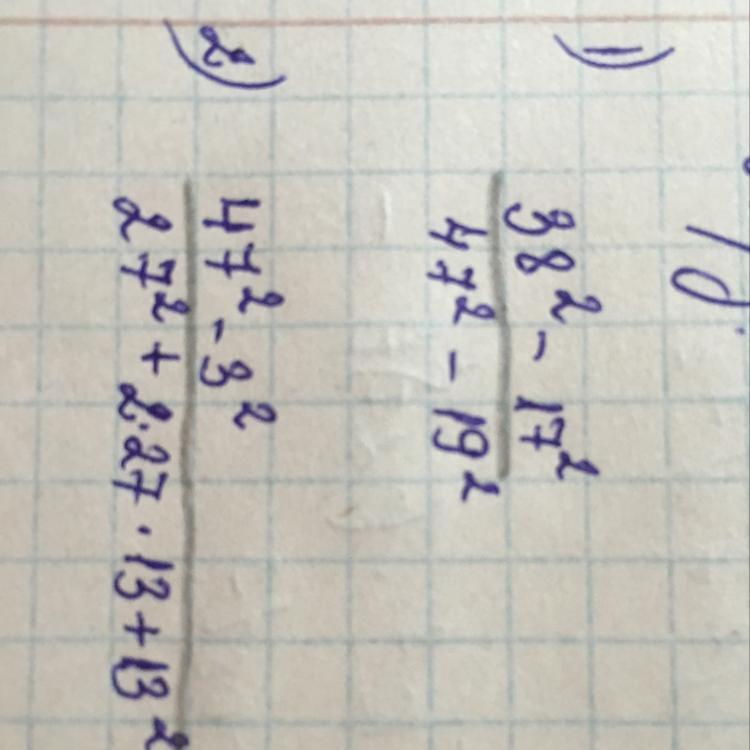 1)
38² - 17²
47² - 19²
2)
47² - 3²
27² + 2·27·13 + 13²